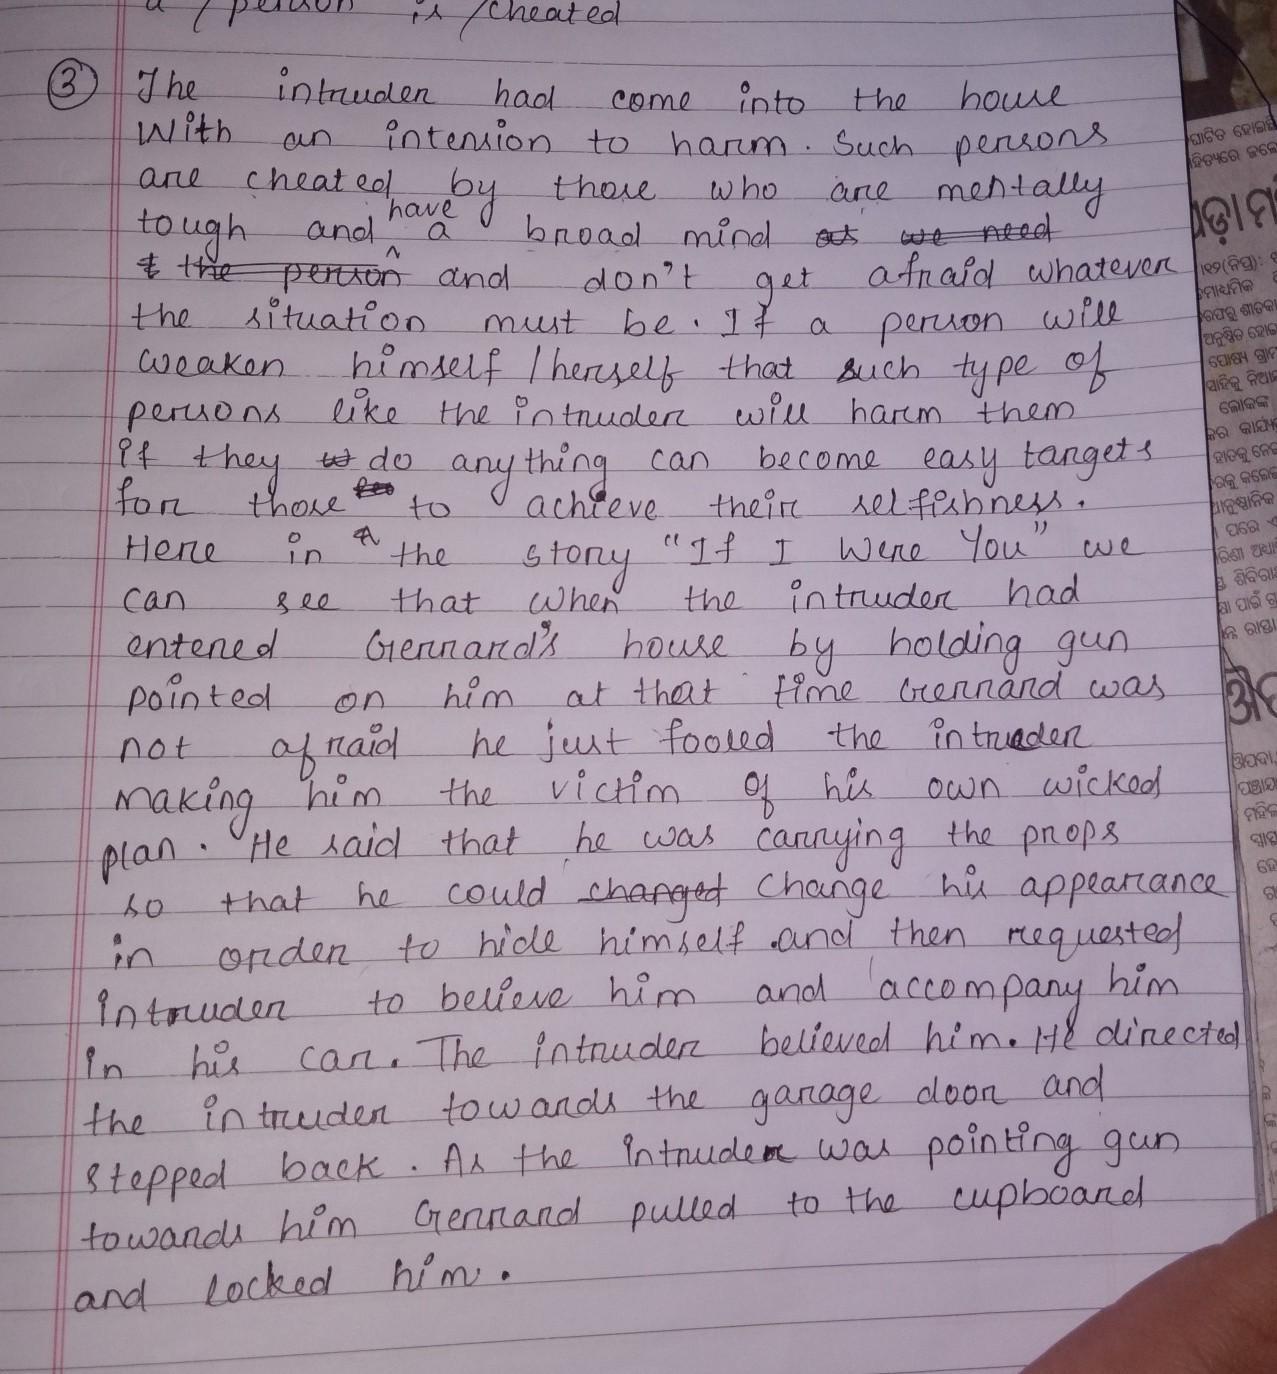 a / person is / cheated
③ The intruder had come into the house
With an intension to harm. Such persons
are cheated by those who are mentally
tough and have a broad mind as we need
t the person and don't get afraid whatever
the situation must be. If a person will
weaken himself / herself that such type of
persons like the intruder will harm them
if they to do anything can become easy targets
for those to achieve their selfishness.
Here in the story "If I Were You" we
can see that when the intruder had
entered Gerrard's house by holding gun
pointed on him at that time Gerrard was
not afraid he just fooled the intruder
making him the victim of his own wicked
plan. He said that he was carrying the props
so that he could changed change his appearance
in order to hide himself and then requested
intruder to believe him and accompany him
in his car. The intruder believed him. He directed
the intruder towards the garage door and
stepped back. As the intruder was pointing gun
towards him Gerrard pulled to the cupboard
and locked him.
ଲୋକଙ୍କ